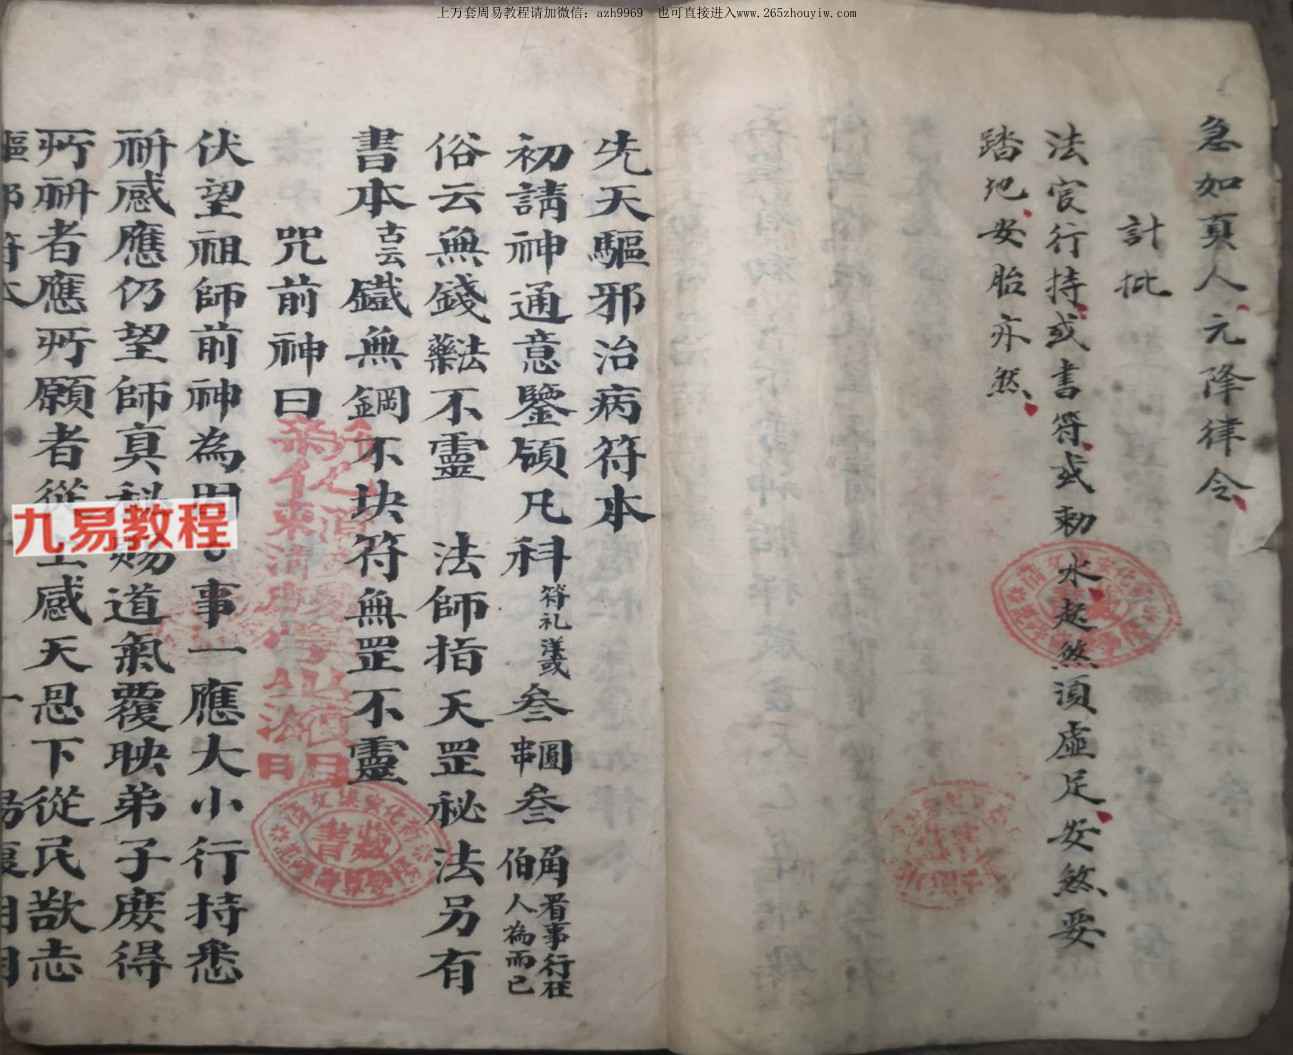 上万套周易教程请加微信：azh9969　也可直接进入www.265zhouyiw.com
急如真人元降律令
計批
法官行持或書符或勅水起煞須虛足安煞要
踏地安胎亦煞
先天驅邪治病符本
初請神通意鑒領凡科符礼洋或叁圓串叁角伯看事行在人為而已
俗云無錢藥法不靈　法師指天罡秘法另有
書本古云鐵無鋼不块符無罡不靈
咒前神曰
伏望祖師前神為因　事一應大小行持悉
祈感應仍望師真　賜道氣覆映弟子庶得
所祈者應所願者從　感天恩下從民欲志
驅邪符本
藏書
九易教程